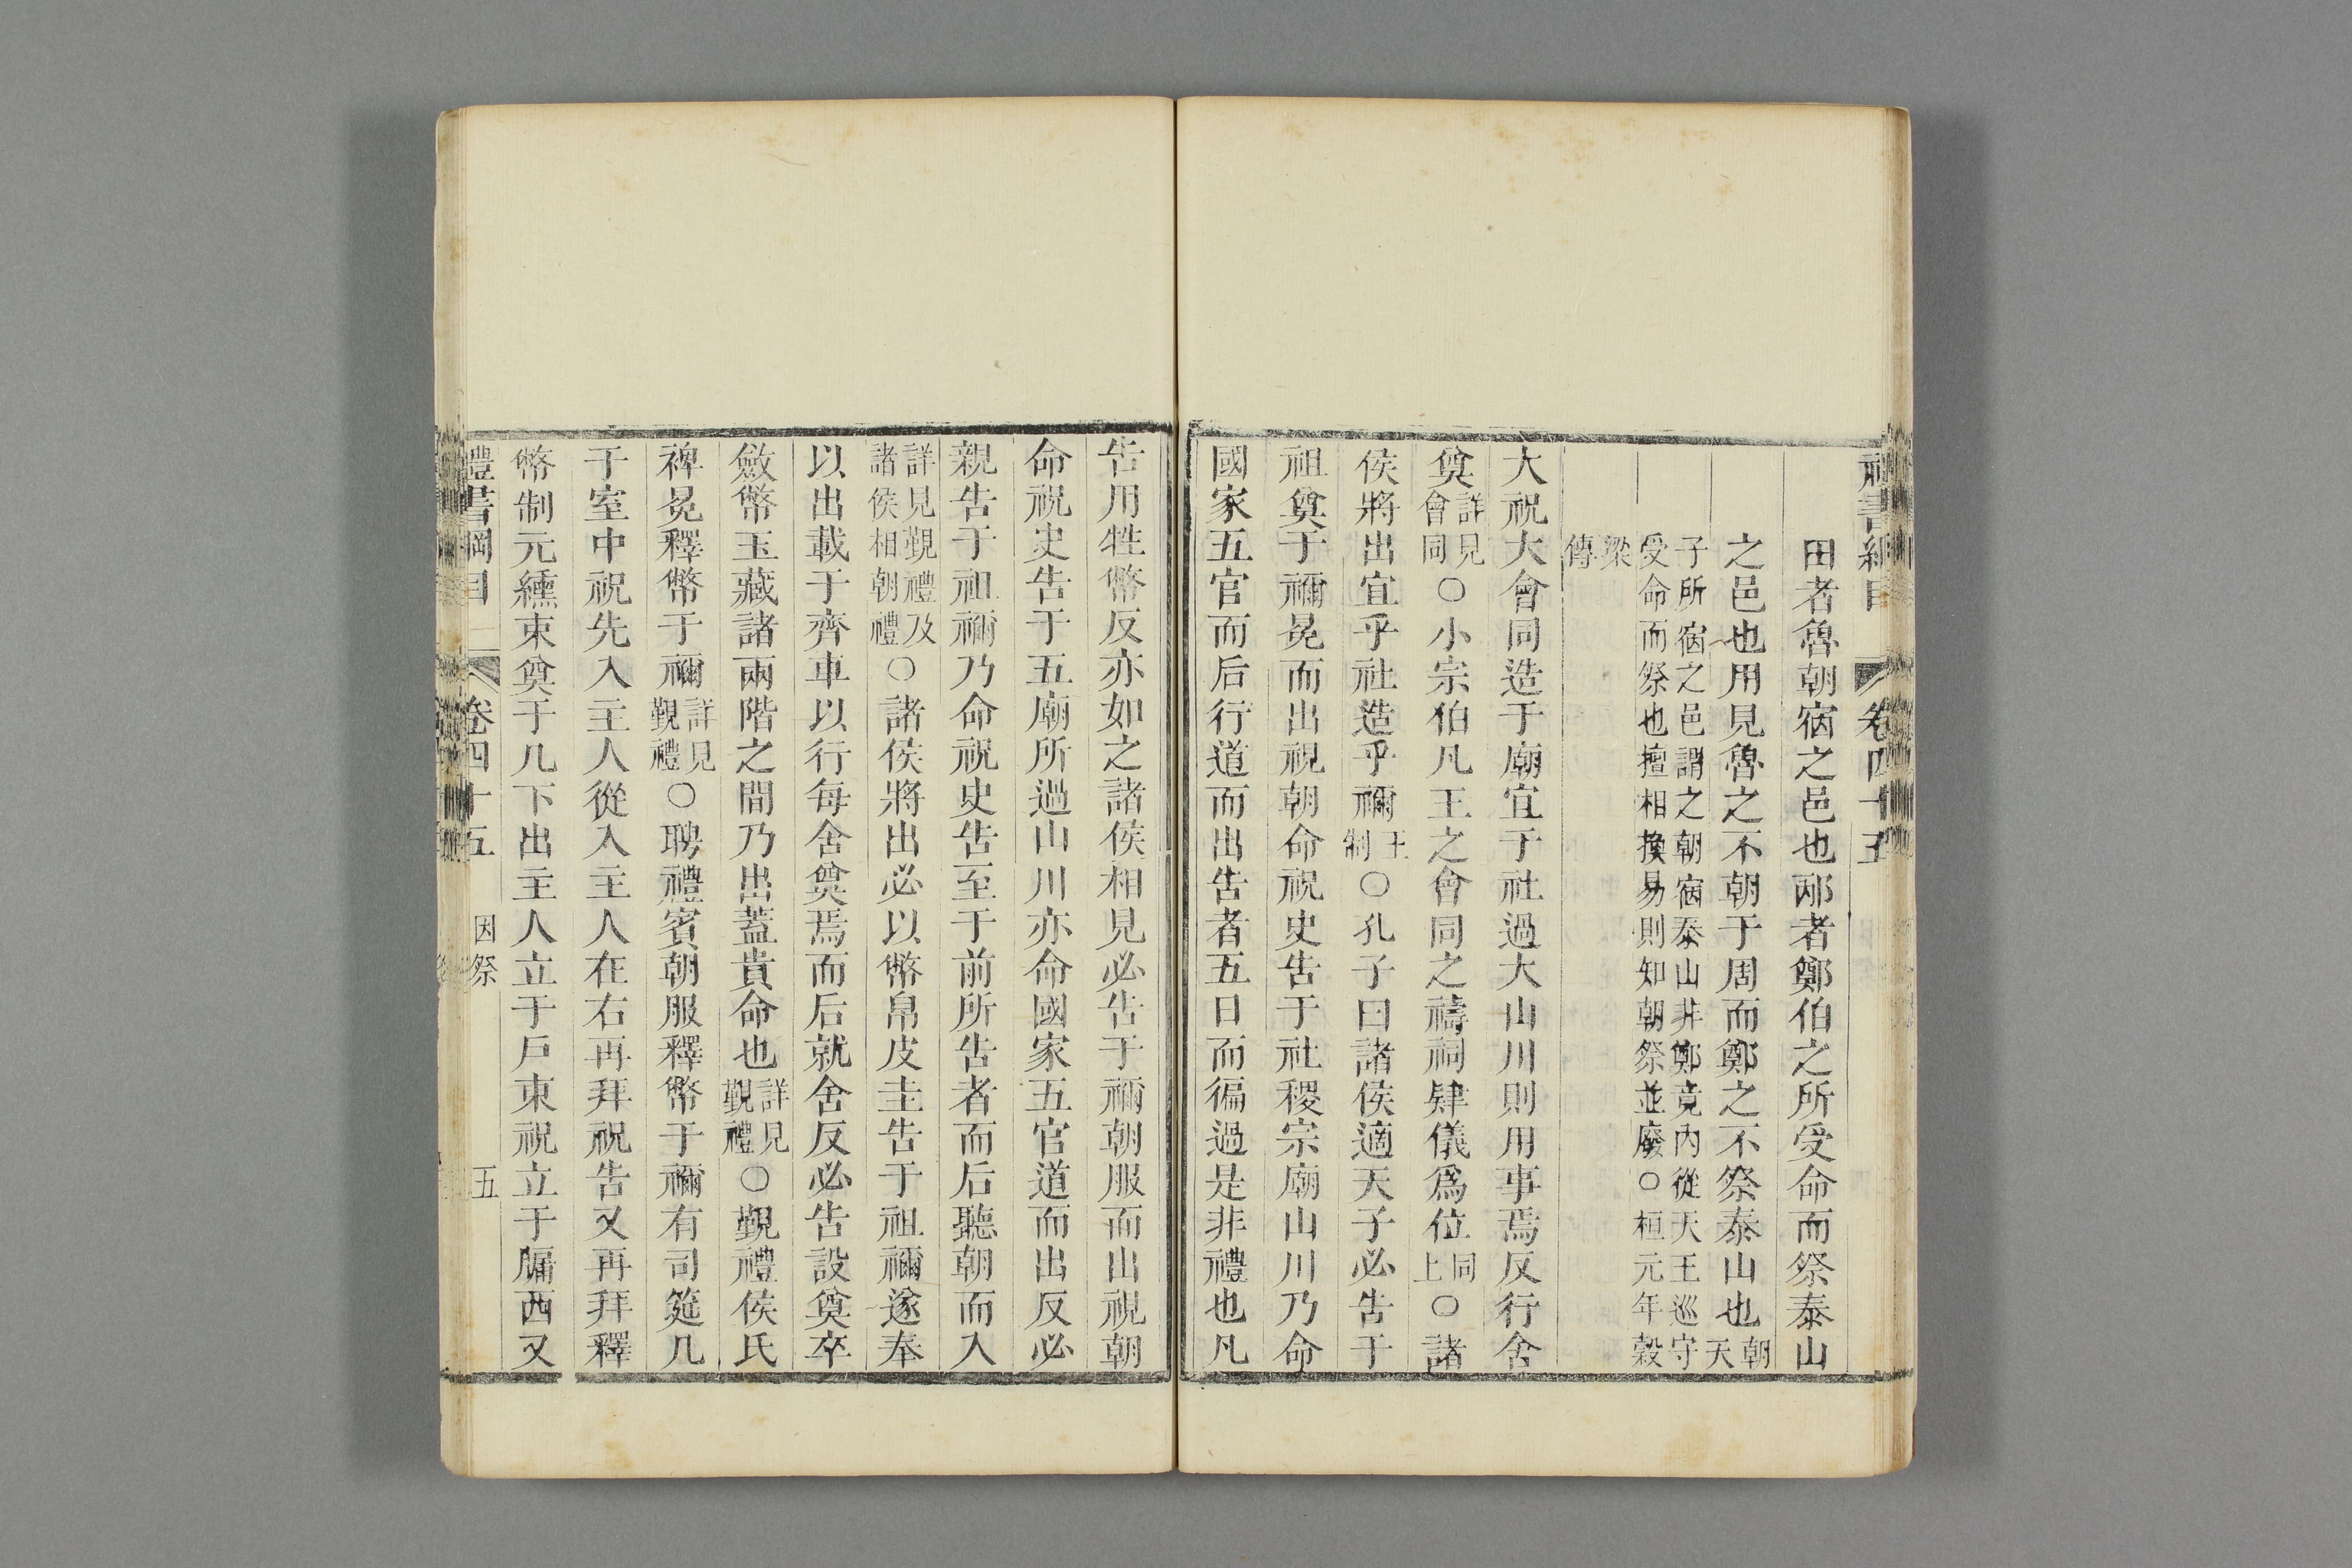 禮書綱目 卷四十五
田者魯朝宿之邑也邴者鄭伯之所受命而祭泰山
之邑也用見魯之不朝于周而鄭之不祭泰山也朝天
子所宿之邑謂之朝宿泰山非鄭竟內從天王巡守
受命而祭也擅相換易則知朝祭並廢○桓元年穀
梁
傳
大祝大會同造于廟宜于社過大山川則用事焉反行舍
奠詳見會同○小宗伯凡王之會同之禱祠肄儀為位同上○諸
侯將出宜乎社造乎禰王制○孔子曰諸侯適天子必告于
祖奠于禰冕而出視朝命祝史告于社稷宗廟山川乃命
國家五官而后行道而出告者五日而徧過是非禮也凡
告用牲幣反亦如之諸侯相見必告于禰朝服而出視朝
命祝史告于五廟所過山川亦命國家五官道而出反必
親告于祖禰乃命祝史告至于前所告者而后聽朝而入
詳見覲禮及諸侯相朝禮○諸侯將出必以幣帛皮圭告于祖禰遂奉
以出載于齊車以行每舍奠焉而后就舍反必告設奠卒
斂幣玉藏諸兩階之間乃出蓋貴命也詳見覲禮○覲禮侯氏
裨冕釋幣于禰詳見覲禮○聘禮賓朝服釋幣于禰有司筵几
于室中祝先入主人從入主人在右再拜祝告又再拜釋
幣制元纁束奠于几下出主人立于戶東祝立于牖西又
禮書綱目 卷四十五 因祭 五